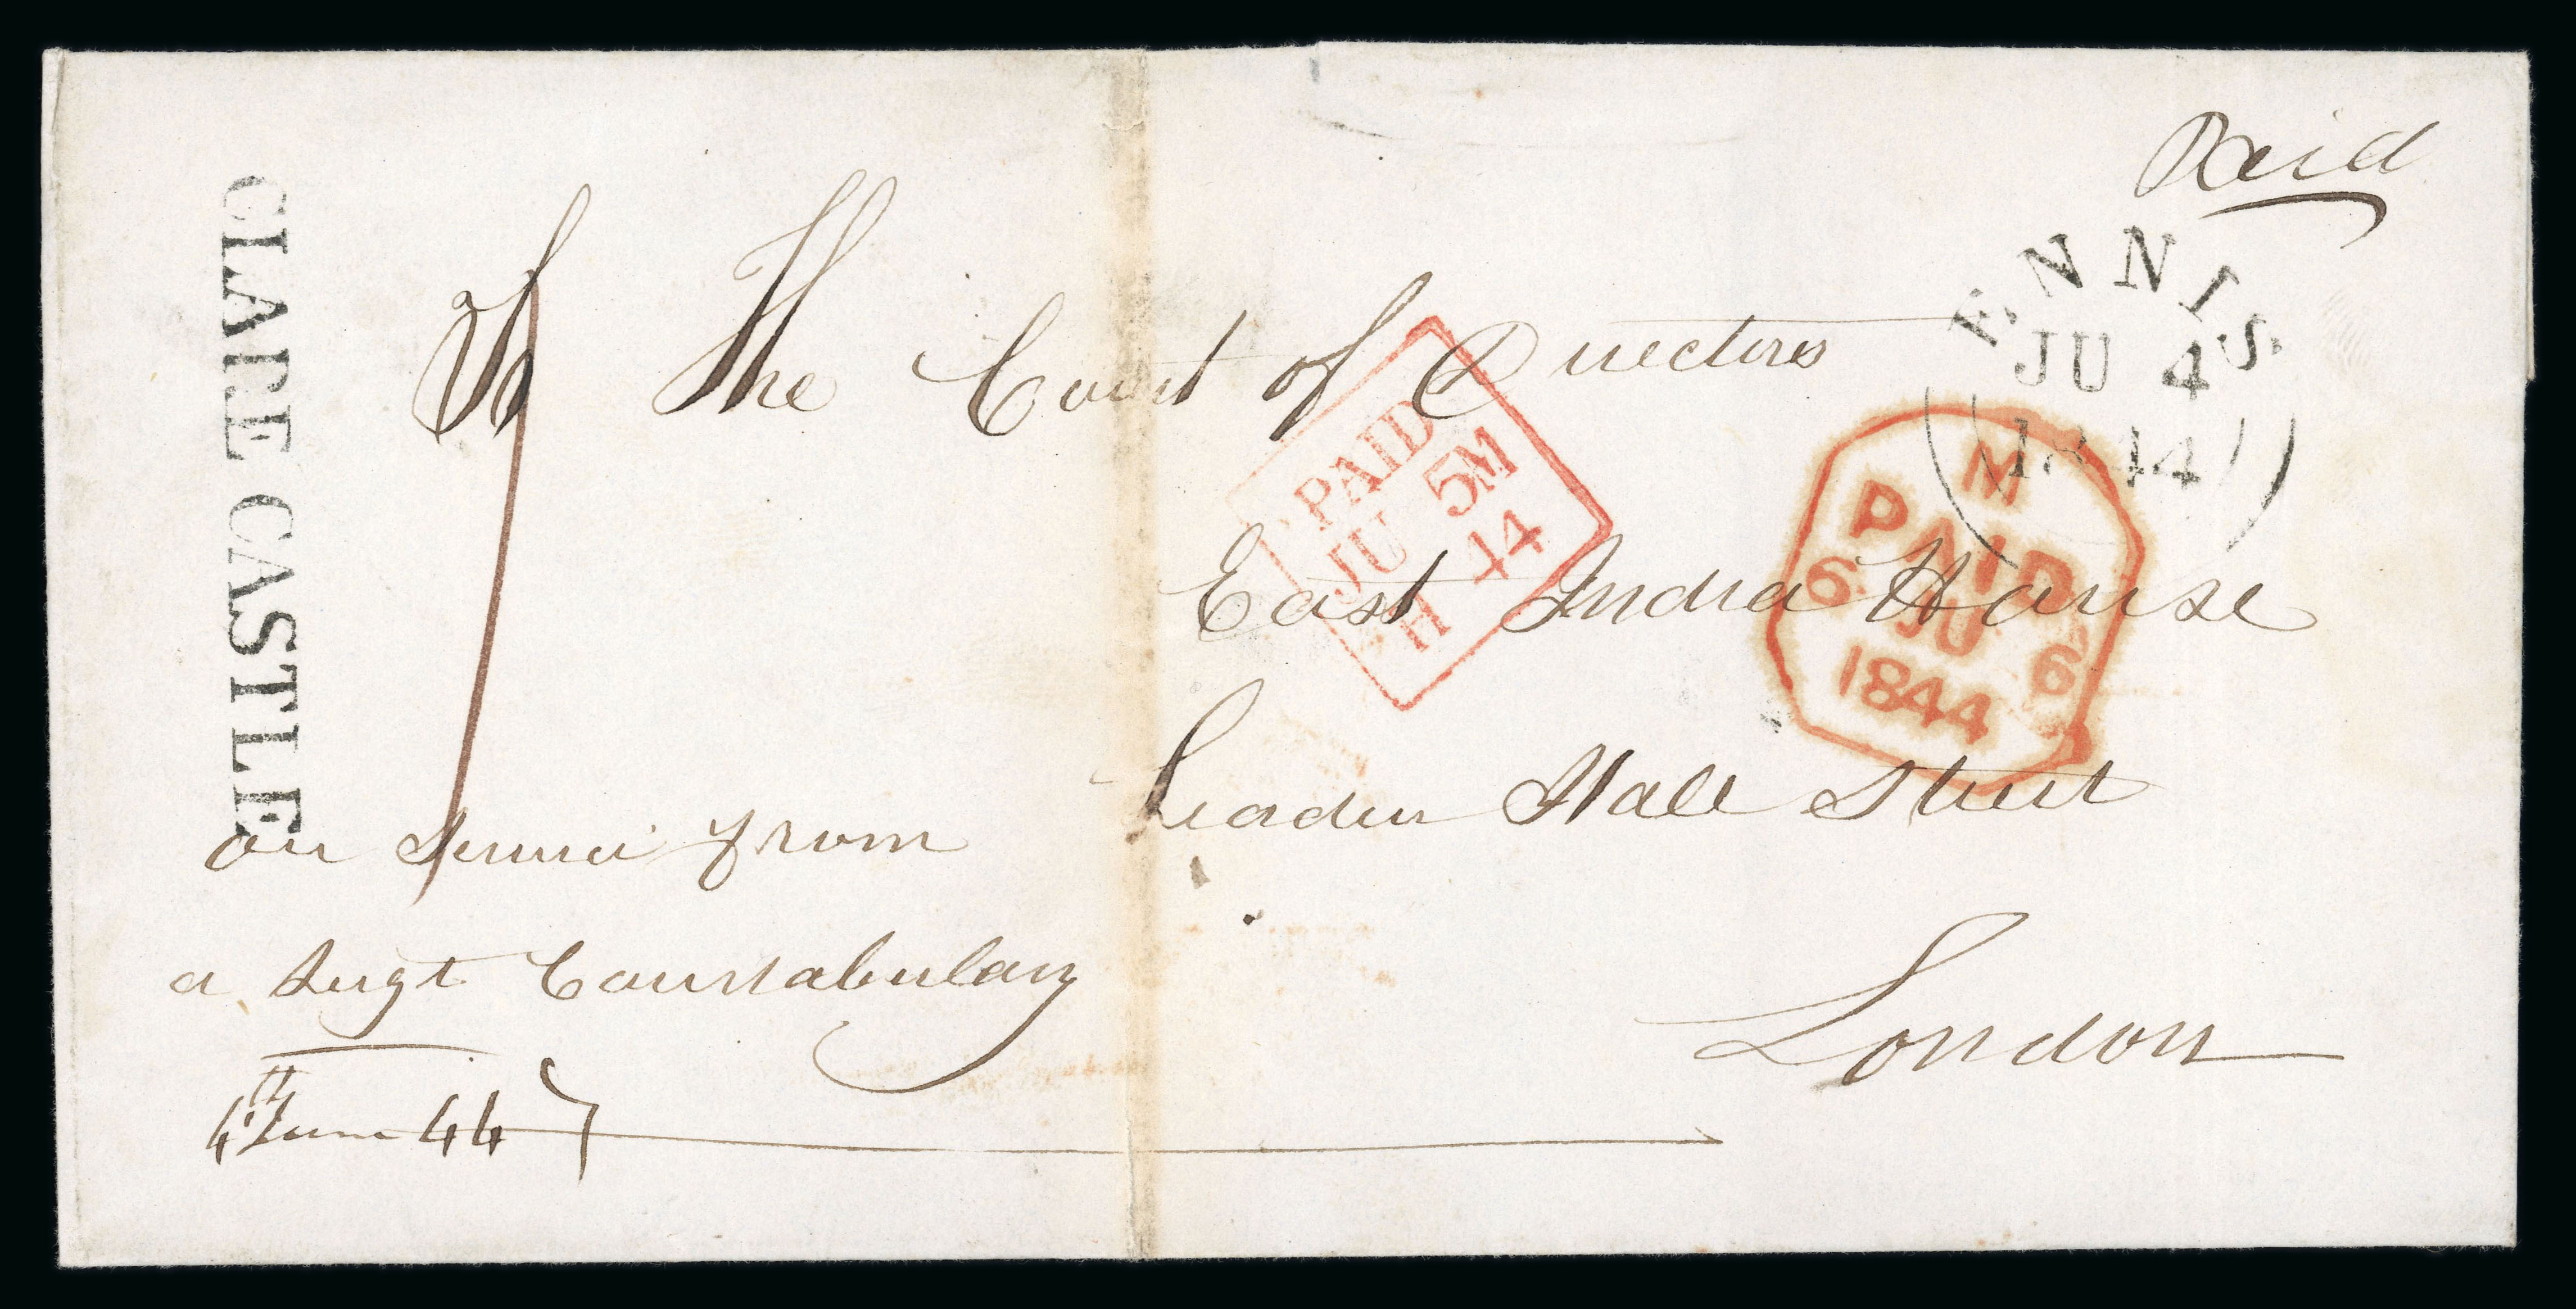 Paid
CLARE CASTLE
ENNIS
JU 4
1844
To The Court of Directors
PAID
JU 5M
44
H
M
PAID
6 JU 6
1844
East India House
Leaden Hall Street
London
on Service from
a Sergt Constabulary
4th June 44
1